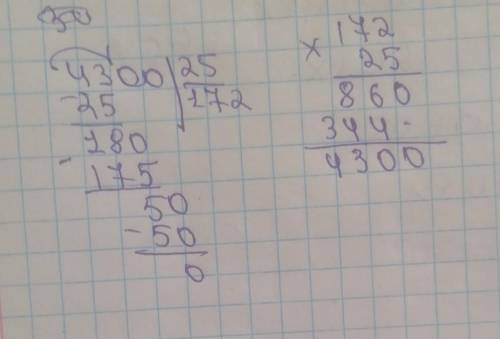 4300 25
-25 172
180
- 175
50
- 50
0
172
× 25
860
344
4300